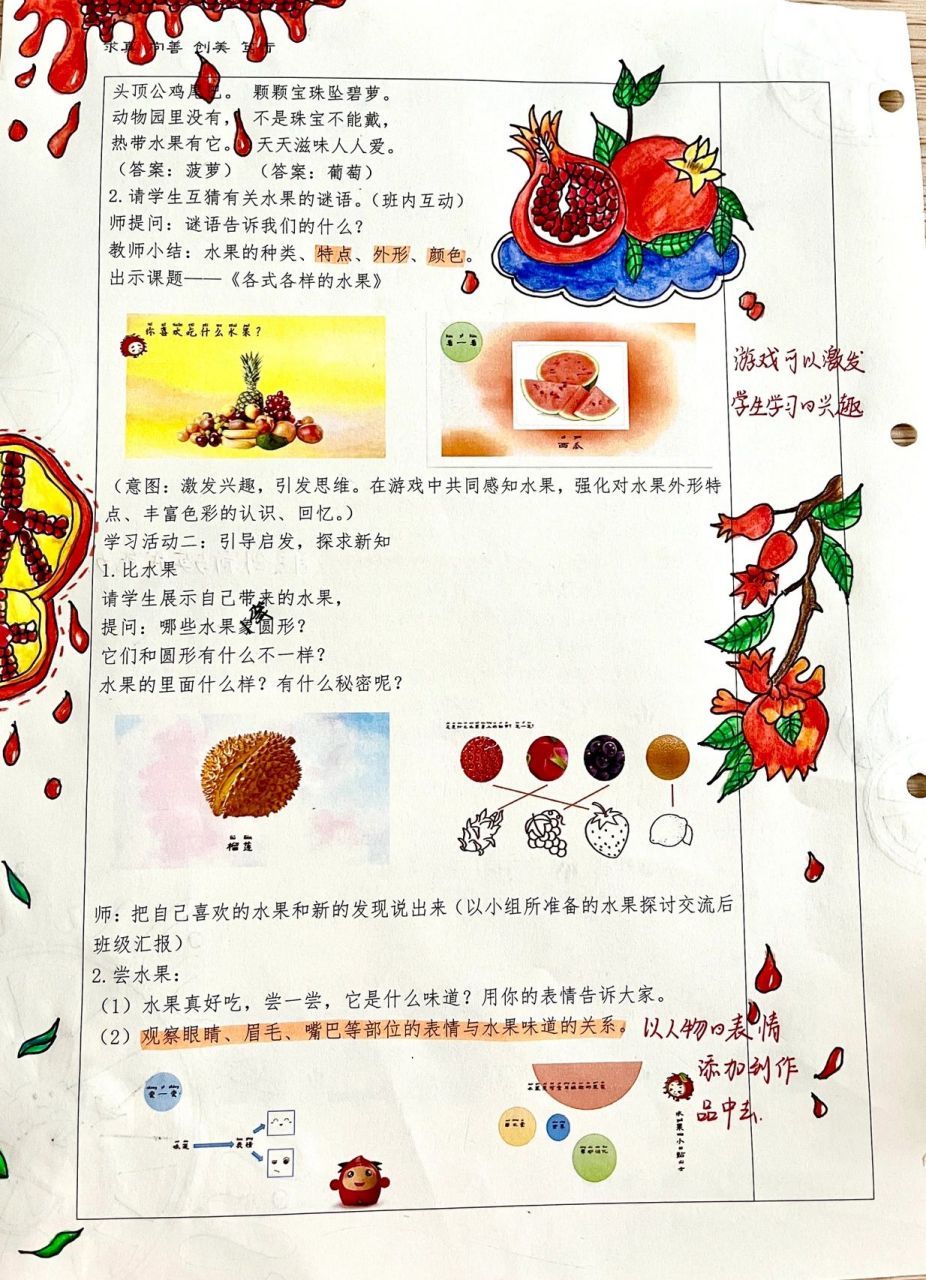 求真 向善 创美 笃行
头顶公鸡尾巴。 颗颗宝珠坠碧萝。
动物园里没有, 不是珠宝不能戴,
热带水果有它。 天天滋味人人爱。
(答案:菠萝) (答案:葡萄)
2.请学生互猜有关水果的谜语。(班内互动)
师提问:谜语告诉我们的什么?
教师小结:水果的种类、特点、外形、颜色。
出示课题——《各式各样的水果》
你喜欢吃什么水果?
看一看
西瓜
游戏可以激发
学生学习的兴趣
(意图:激发兴趣,引发思维。在游戏中共同感知水果,强化对水果外形特
点、丰富色彩的认识、回忆。)
学习活动二:引导启发,探求新知
1.比水果
请学生展示自己带来的水果,
提问:哪些水果象圆形?
像
它们和圆形有什么不一样?
水果的里面什么样?有什么秘密呢?
榴莲
师:把自己喜欢的水果和新的发现说出来(以小组所准备的水果探讨交流后
班级汇报)
2.尝水果:
(1)水果真好吃,尝一尝,它是什么味道?用你的表情告诉大家。
(2)观察眼睛、眉毛、嘴巴等部位的表情与水果味道的关系。
以人物的表情
添加到作
品中去.
味道
表情
水果小贴士